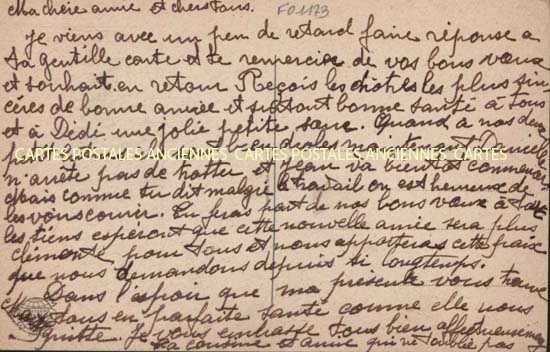 Ma chère amie et chers tous.
FO1173
Je viens avec un peu de retard faire réponse à
ta gentille carte et te remercier de vos bons vœux
et souhait. en retour Reçois les nôtres les plus sin
cères de bonne année et surtout bonne santé à tous
et à Dédé une jolie petite sœur. Quand à nos deux
CARTES POSTALES ANCIENNES CARTES POSTALES ANCIENNES CARTES
n'arrête pas de trotter et va bientôt commencer
Mais comme tu dit malgré le travail on est heureux de
les voir courir. Tu feras part de nos bons vœux à
les tiens espéront que cette nouvelle année sera plus
clémente pour tous et nous apportera cette paix
que nous demandons depuis si longtemps.
Dans l'espoir que ma présente vous trouve
tous en parfaite santé comme elle nous
quitte. Je vous embrasse tous bien affectueusement
Ta cousine et amie qui ne oublie pas